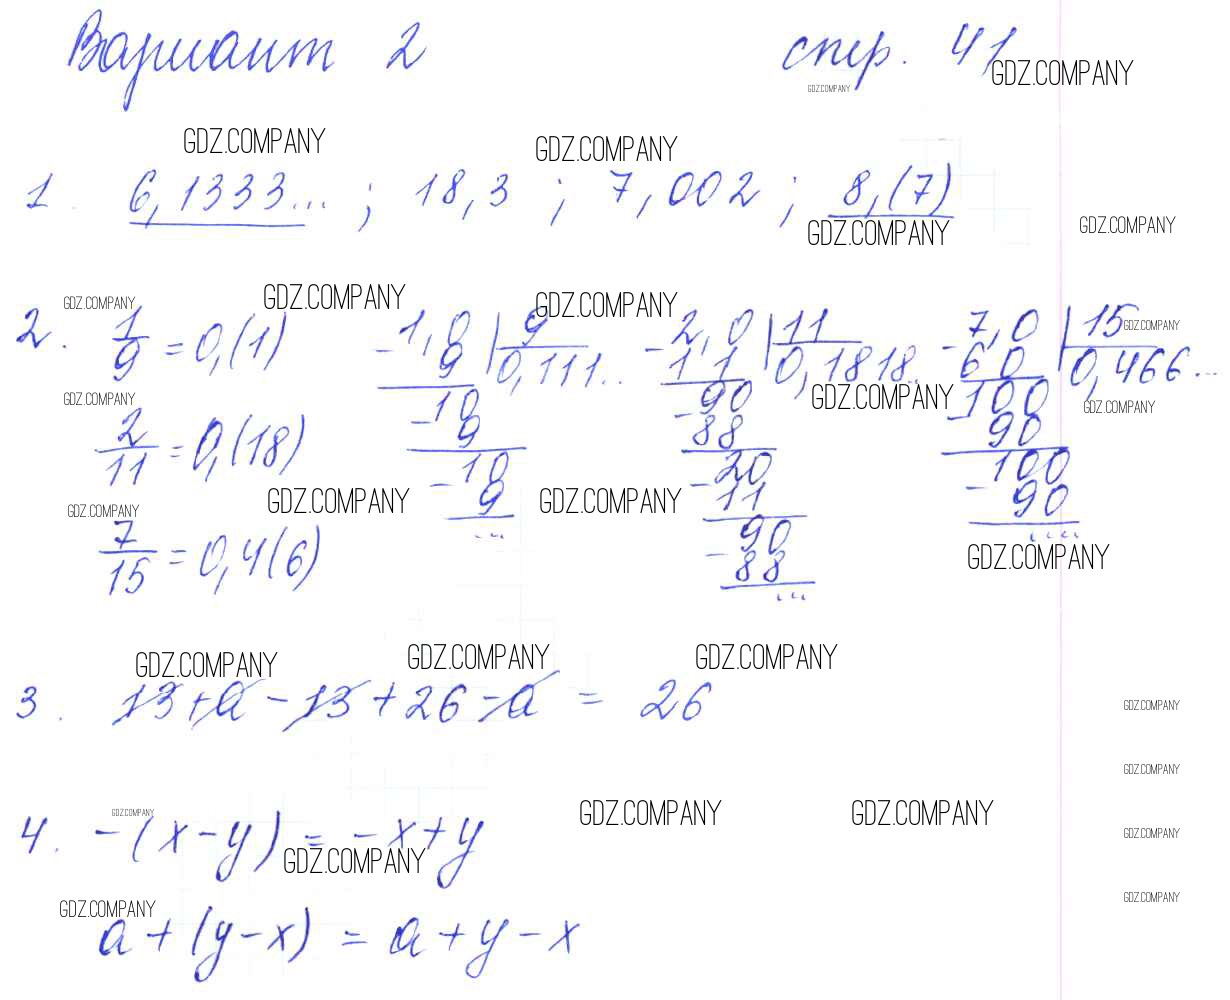 Вариант 2 стр. 41
GDZ.COMPANY
GDZ.COMPANY
GDZ.COMPANY GDZ.COMPANY
1. 6,1333... ; 18,3 ; 7,002 ; 8,(7)
GDZ.COMPANY GDZ.COMPANY
GDZ.COMPANY GDZ.COMPANY GDZ.COMPANY
2. 1/9 = 0,(1) -1,0 | 9 -2,0 | 11 -7,0 | 15 GDZ.COMPANY
9 0,111... 1 1 0,1818... 6 0 0,466...
GDZ.COMPANY -10 -90 GDZ.COMPANY -100 GDZ.COMPANY
2/11 = 0,(18) 9 88 90
-10 -20 -100
GDZ.COMPANY GDZ.COMPANY GDZ.COMPANY 9 11 90
7/15 = 0,4(6) ... -90 ....
88 GDZ.COMPANY
...
GDZ.COMPANY GDZ.COMPANY GDZ.COMPANY
3. 13+a-13+26-a = 26 GDZ.COMPANY
GDZ.COMPANY
GDZ.COMPANY GDZ.COMPANY GDZ.COMPANY
4. -(x-y) = -x+y GDZ.COMPANY
GDZ.COMPANY
GDZ.COMPANY GDZ.COMPANY
a+(y-x) = a+y-x